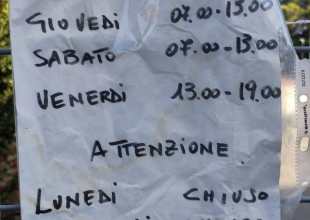 GIOVEDÌ 07.00-13.00
SABATO 07.00-13.00
VENERDÌ 13.00-19.00
ATTENZIONE
LUNEDÌ CHIUSO